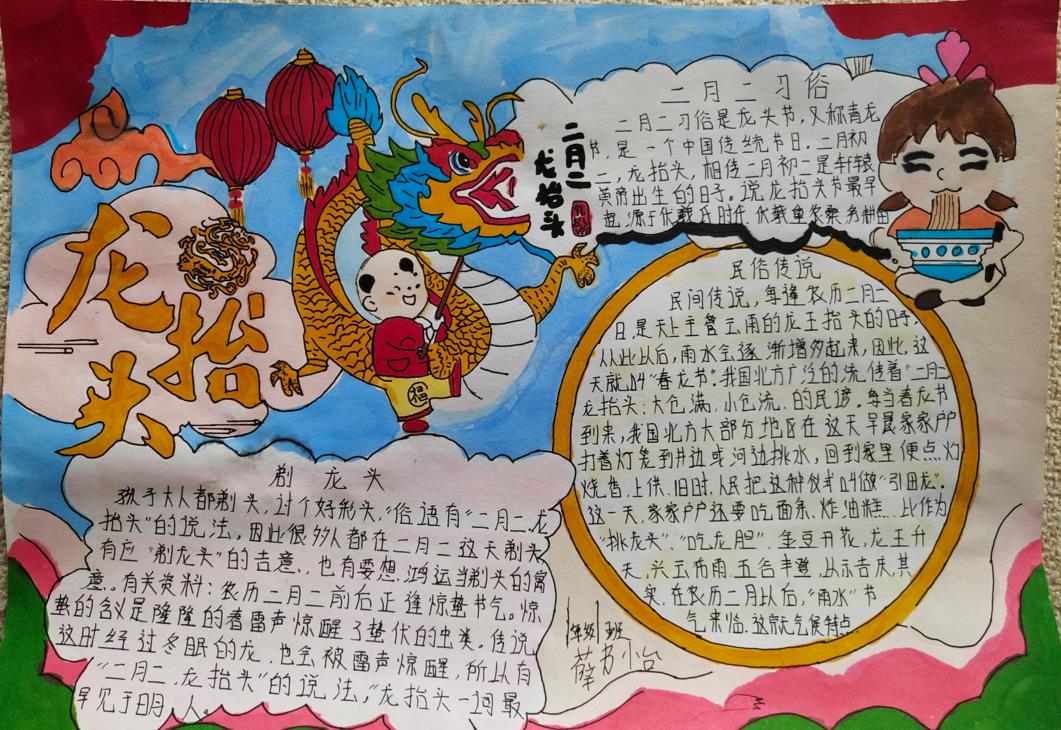 龙抬头
二月二
龙抬头
福
二月二习俗
二月二习俗是龙头节,又称青龙
节,是一个中国传统节日.二月初
二,龙抬头,相传二月初二是轩辕
黄帝出生的日子.说龙抬头节最早
起,源于伏羲氏时
民俗传说
民间传说,每逢农历二月二
日,是天上主管云雨的龙王抬头的日子.
从此以后,雨水会逐渐增多起来,因此,这
天就叫“春龙节”.我国北方广泛的流传着“二月二
龙抬头;大仓满,小仓流.的民谚.每当春龙节
到来,我国北方大部分地区在这天早晨家家户户
打着灯笼到井边或河边挑水,回到家里便点灯
烧香.上供.旧时,人民把这种仪式叫做“引田龙”.
这一天,家家户户还要吃面条.炸油糕...比作为
“挑龙头”,“吃龙胆”.金豆开花,龙王升
天,兴云布雨.五谷丰登,从示吉庆.其
实,在农历二月以后,“雨水”节
气来临.这就元气候特点
剃龙头
孩子大人都剃头,讨个好彩头,“俗语有“二月二.龙
抬头”的说法,因此很多人都在二月二这天剃头
有应“剃龙头”的吉意.也有要想.鸿运当剃头的寓
意.有关资料:农历二月二前后正逢惊蛰节气。惊
蛰的含义是隆隆的春雷声惊醒了蛰伏的虫类.传说
这时经过冬眠的龙.也会被雷声惊醒,所以有
“二月二.龙抬头”的说法,“龙抬头一词最
早见于明.人。
班